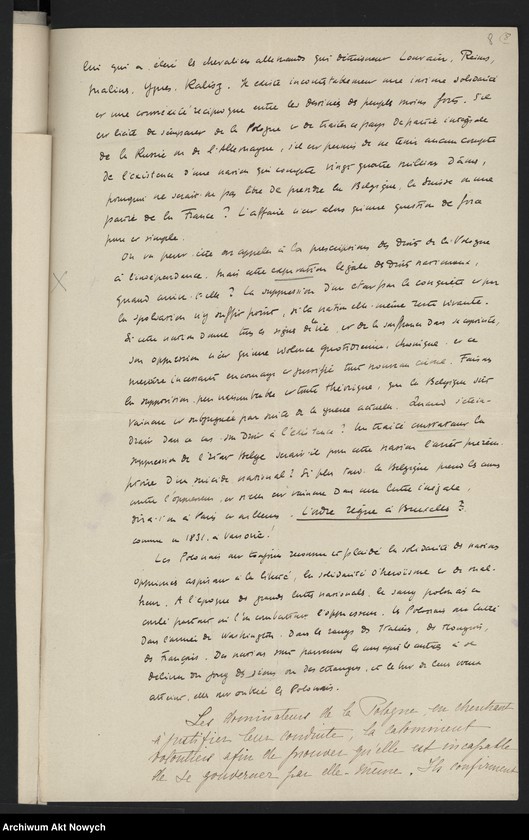 8
lui qui a élevé les chevaliers allemands qui détruisent Louvain, Reims,
Malines, Ypres, Kalisz. Il existe incontestablement une intime solidarité
et une réciproque entre les destinées de peuples moins forts. S'il
est licite de s'emparer de la Pologne et de traiter ce pays de partie intégrale
de la Russie ou de l'Allemagne, s'il est permis de ne tenir aucun compte
de l'existence d'une nation qui compte vingt quatre millions d'âmes,
pourquoi ne serait-on pas libre de prendre la Belgique, la Suisse ou une
partie de la France ? L'affaire n'est alors qu'une question de force
pure et simple.
On va peut-être en appeler à la prescription des droits de la Pologne
à l'indépendance. Mais cette expiration légale des droits nationaux,
quand arrive-t-elle ? La suppression d'un état par la conquête et par
la spoliation n'y suffit point, si la nation elle-même reste vivante.
Si cette nation donne tous les signes de la vie, et de la souffrance dans
son oppression n'est qu'une violence quotidienne, chronique et ce
incessant encourage et justifie tout nouveau crime. Faisons
la supposition, peu vraisemblable et toute théorique, que la Belgique soit
vaincue et subjuguée par suite de la guerre actuelle. Quand s'étein-
drait dans ce cas son droit à l'existence ? Un traité constatant la
suppression de l'état Belge serait-il pour cette nation l'arrêt
d'un suicide national ? Si plus tard la Belgique prend les armes
contre l'oppresseur, et si elle est vaincue dans une lutte inégale,
dira-t-on à Paris et ailleurs: L'ordre règne à Bruxelles ?
comme en 1831. à Varsovie !
Les Polonais ont toujours reconnu et plaidé la solidarité des nations
opprimées aspirant à la liberté, la solidarité d'héroïsme et de mal-
heur. A l'époque des grandes luttes nationales, le sang polonais a
coulé partout où l'on combattait l'oppresseur. Les Polonais ont lutté
dans l'armée de Washington. Dans les rangs des Italiens, des Hongrois,
des Français. Des nations sont parvenues les unes après les autres à se
délivrer du joug des ou des étrangers, et le but de leurs vœux
atteint, elles ont oublié les Polonais.
Les dominateurs de la Pologne, en cherchant
à justifier leur conduite, la calomnient
volontiers afin de prouver qu'elle est incapable
de se gouverner par elle-même. Ils confirment
Archiwum Akt Nowych